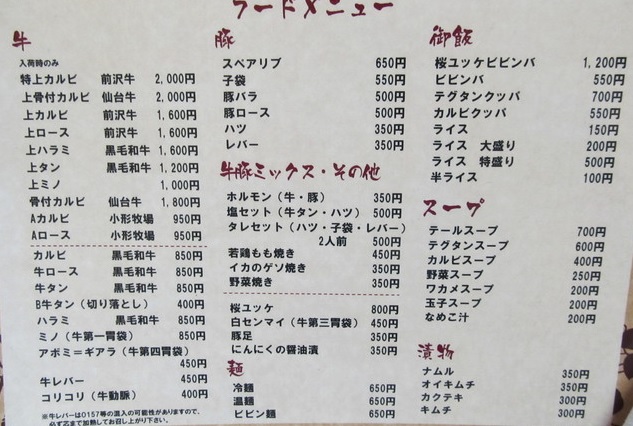 フードメニュー
牛
入荷時のみ
特上カルビ 前沢牛 2,000円
上骨付カルビ 仙台牛 2,000円
上カルビ 前沢牛 1,600円
上ロース 前沢牛 1,600円
上ハラミ 黒毛和牛 1,600円
上タン 黒毛和牛 1,200円
上ミノ 1,000円
骨付カルビ 仙台牛 1,800円
Aカルビ 小形牧場 950円
Aロース 小形牧場 950円
カルビ 黒毛和牛 850円
牛ロース 黒毛和牛 850円
牛タン 黒毛和牛 850円
B牛タン（切り落とし） 400円
ハラミ 黒毛和牛 850円
ミノ（牛第一胃袋） 850円
アボミ＝ギアラ（牛第四胃袋）
450円
牛レバー 450円
コリコリ（牛動脈） 400円
※牛レバーはO157等の混入の可能性がありますので、
必ず芯まで加熱してお召し上がり下さい。
豚
スペアリブ 650円
子袋 550円
豚バラ 500円
豚ロース 500円
ハツ 350円
レバー 350円
牛豚ミックス・その他
ホルモン（牛・豚） 350円
塩セット（牛タン・ハツ） 500円
タレセット（ハツ・子袋・レバー）
2人前 500円
若鶏もも焼き 450円
イカのゲソ焼き 350円
野菜焼き 350円
桜ユッケ 800円
白センマイ（牛第三胃袋） 450円
豚足 350円
にんにくの醤油漬 350円
麺
冷麺 650円
温麺 650円
ビビン麺 650円
御飯
桜ユッケビビンバ 1,200円
ビビンバ 550円
テグタンクッパ 700円
カルビクッパ 550円
ライス 150円
ライス 大盛り 200円
ライス 特盛り 500円
半ライス 100円
スープ
テールスープ 700円
テグタンスープ 600円
カルビスープ 400円
野菜スープ 250円
ワカメスープ 200円
玉子スープ 200円
なめこ汁 200円
漬物
ナムル 350円
オイキムチ 350円
カクテキ 300円
キムチ 300円